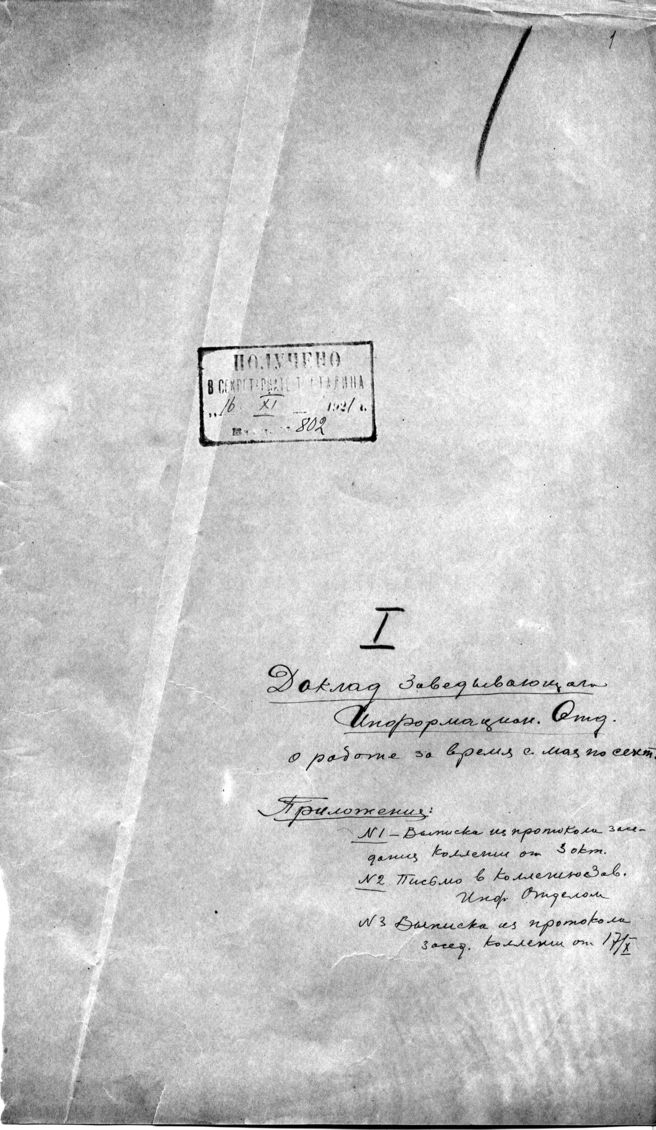 1
ПОЛУЧЕНО
В СЕКРЕТАРИАТЕ Т. СТАЛИНА
„16 XI 1921 г.
802
I
Доклад Заведывающаго
Информацион. Отд.
о работе за время с мая по сент.
Приложения:
N1 – Выписка из протокола засе-
дания Коллегии от 3 окт.
N2. Письмо в Коллегию Зав.
Инф. Отделом
N3 Выписка из протокола
засед. Коллегии от 17/X